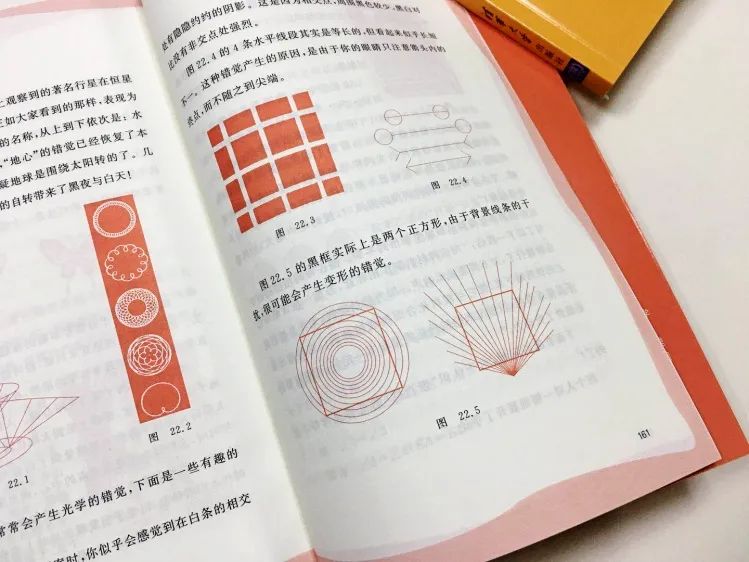 上观察到的著名行星在恒星
正如大家看到的那样,表现为
的名称,从上到下依次是:水
“地心”的错觉已经恢复了本
疑地球是围绕太阳转的了。几
的自转带来了黑夜与白天!
图 22.2
22.1
常常会产生光学的错觉,下面是一些有趣的
案时,你似乎会感觉到在白条的相交
处有隐隐约约的阴影。这是因为相交点,周围黑色较少,黑白对
比没有非交点处强烈。
图 22.4 的 4 条水平线段其实是等长的,但看起来似乎长短
不一。这种错觉产生的原因,是由于你的眼睛只注意箭头内的
终点,而不随之到尖端。
图 22.3
图 22.4
图 22.5 的黑框实际上是两个正方形,由于背景线条的干
扰,很可能会产生变形的错觉。
图 22.5
161